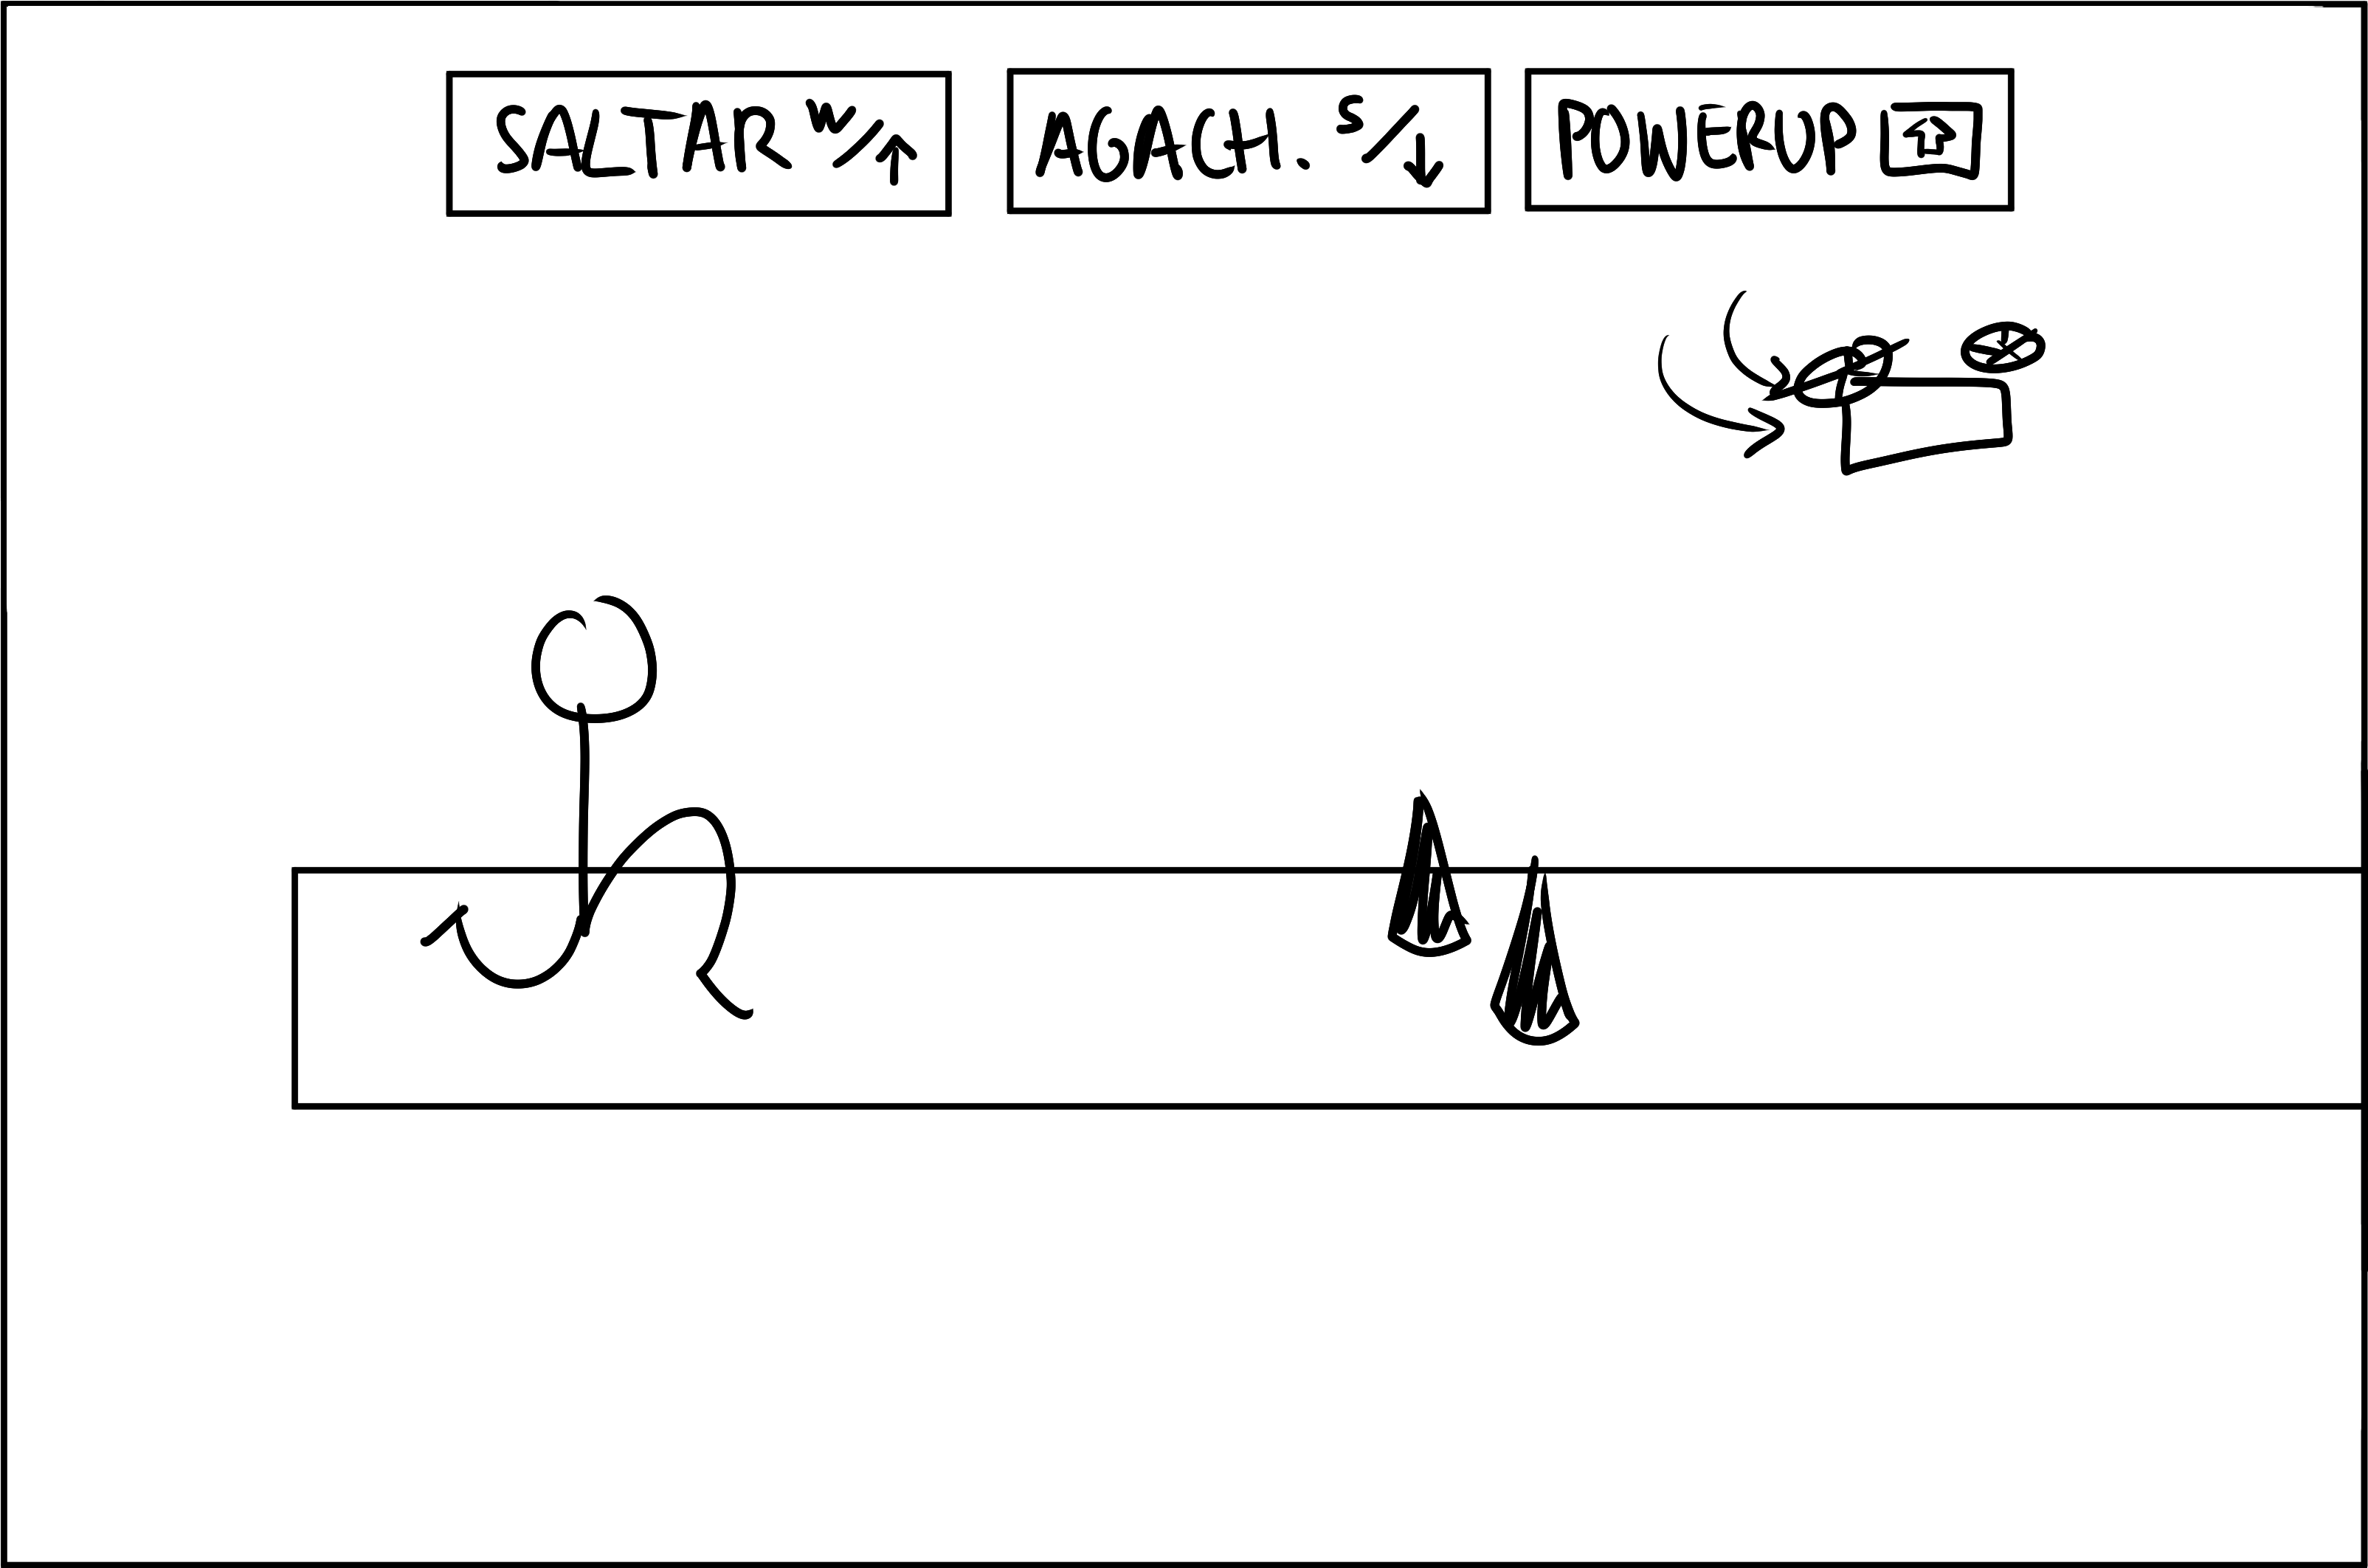 SALTAR W/↑
AGACH. S/↓
POWERUP